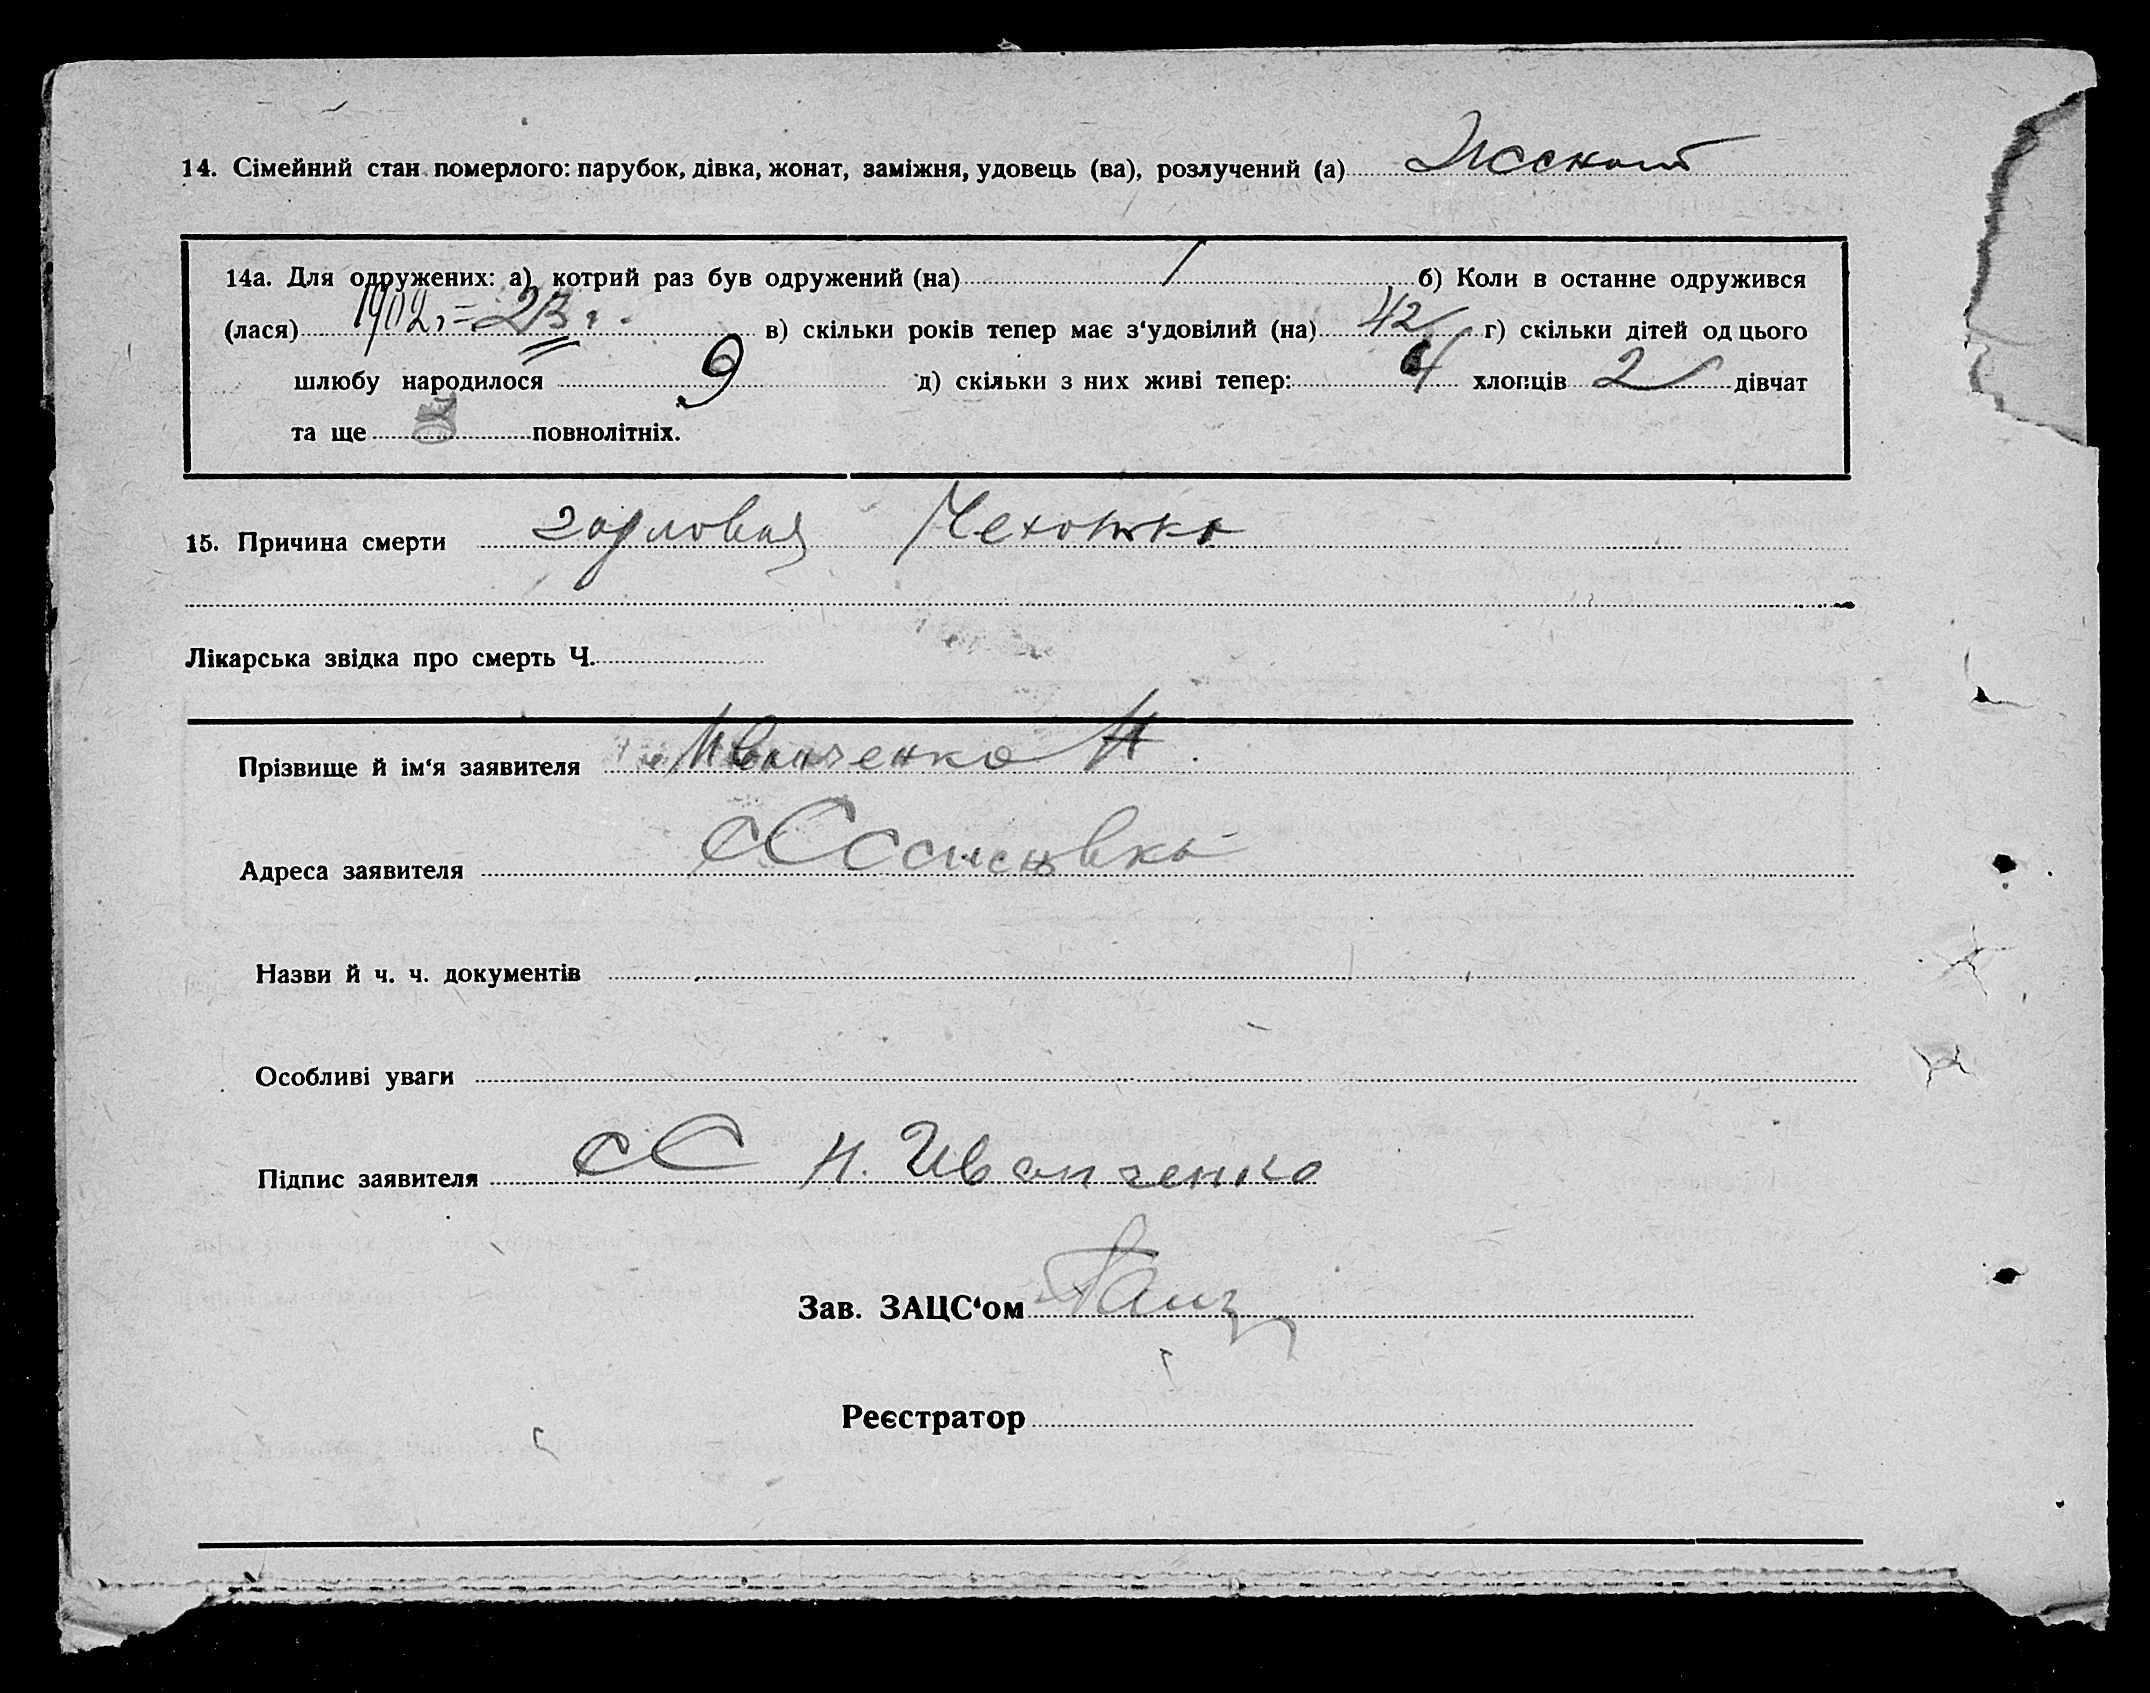 14. Сімейний стан померлого: парубок, дівка, жонат, заміжня, удовець (ва), розлучений (а) Женат
14а. Для одружених: а) котрий раз був одружений (на) 1 б) Коли в останне одружився
(лася) 1902 г = 23 г. в) скільки років тепер має з'удовілий (на) 42 г) скільки дітей од цього
шлюбу народилося 9 д) скільки з них живі тепер: 4 хлопців 2 дівчат
та ще повнолітніх.
15. Причина смерти горловая Чехотка
Лікарська звідка про смерть Ч.
Прізвище й ім'я заявителя Иванченко Н
Адреса заявителя
Назви й ч. ч. документів
Особливі уваги
Підпис заявителя Н. Иванченко
Зав. ЗАЦС'ом
Реєстратор